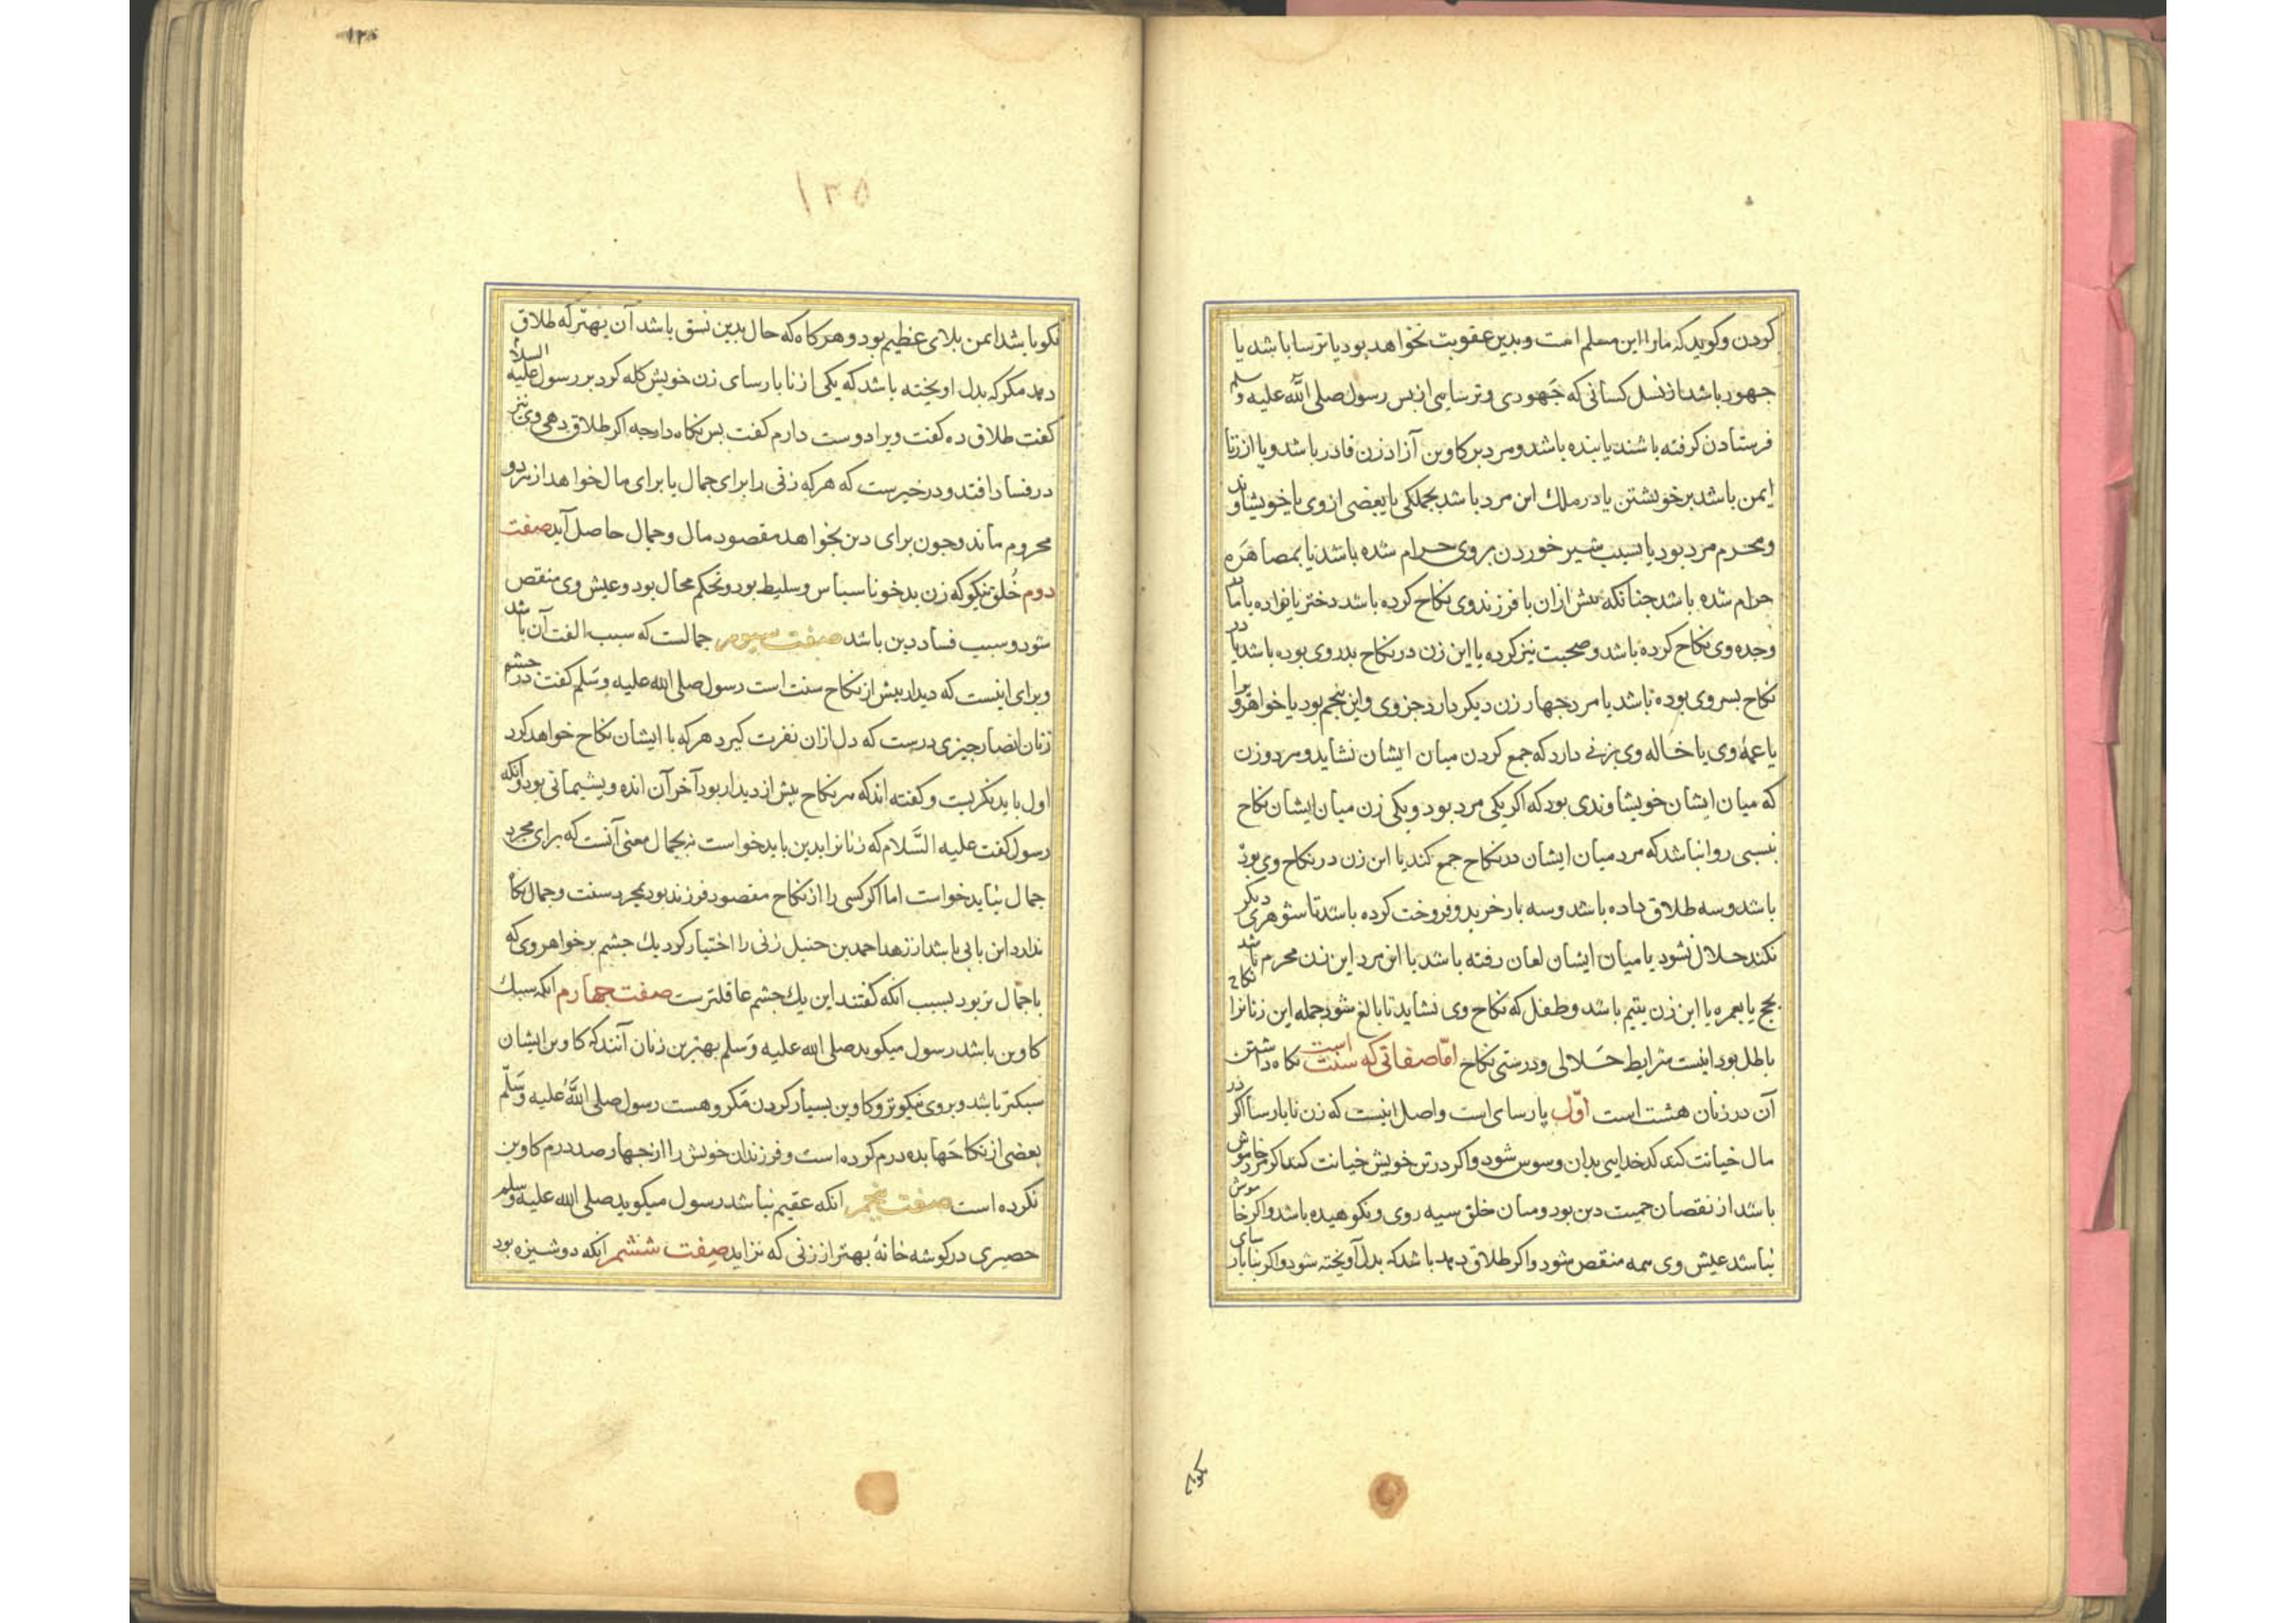 کردن و کوید که ما را این مسلم است و بدین عقوبت نخواهد بود یا ترسا باشد یا
جهود باشد از نسل کسانی که جَهودی و ترسایی از بس رسول صلی اللّه علیه وسلم
فرستادن کرفته باشند یا بنده باشد و مرد بر کاوین آزاد زن قادر باشد و یا از زنا
ایمن باشد بر خویشتن یا در ملك این مرد باشد بجملکی یا بعضی از وی یا خویشاوند
ومحرم مرد بود یا بسبب شیر خوردن بر وی حرام شده باشد یا بمصاهَره
حرام شده باشد جنانکه بیش ازان با فرزند وی نکاح کرده باشد دختر یا نواده یا مادر
وجده وی نکاح کرده باشد و صحبت نیز کرده یا این زن در نکاح بدر وی بوده باشد یا در
نکاح بسر وی بوده باشد یا مرد جهار زن دیکر دارد جز وی و این بنجم بود یا خواهر ویرا
یا عمهٔ وی یا خاله وی بزنی دارد که جمع کردن میان ایشان نشاید و هر دو زن
که میان ایشان خویشاوندی بود که اکر یکی مرد بود و یکی زن میان ایشان نکاح
بنسبی روا نباشد که مرد میان ایشان در نکاح جمع کند یا این زن در نکاح وی بود
باشد و سه طلاق داده باشد و سه بار خرید و فروخت کرده باشد تا شوهری دیکر
نکند حلال نشود یا میان ایشان لعان رفته باشد یا این مرد این زن محرم باشد
بحج یا بعمره یا این زن یتیم باشد و طفل که نکاح وی نشاید تا بالغ شود جمله این زنانرا نکاح
باطل بود اینست شرایط حَلالی و درستی نکاح امّا صفاتی که سنت است نکاه داشتن
آن در زنان هشت است اوّل پارسای است و اصل اینست که زن نابارسا اکر در
مال خیانت کند کدخدایی بدان وسوس شود و اکر در تن خویش خیانت کند اکر مرد خاموش
باشد از نقصان حمیت دین بود و میان خلق سیه روی و نکوهیده باشد و اکر خاموش
نباشد عیش وی همه منقص شود و اکر طلاق دهد باشد که بدل آویخته شود و اکر نابارسای
نکو باشد ایمن بلای عظیم بود و هرکاه که حال بدین نسق باشد آن بهتر که طلاق
دهد مکر که بدل اویخته باشد که یکی از نابارسای زن خویش کله کرد بر رسول علیه السلام
کفت طلاق ده کفت ویرا دوست دارم کفت بس نکاه دار جه اکر طلاق دهی وی نیز
در فساد افتد و در خبرست که هرکه زنی را برای جمال یا برای مال خواهد از هر دو
محروم ماند و جون برای دین بخواهد مقصود مال و جمال حاصل آید صفت
دوم خُلق نیکو که زن بدخو ناسباس و سلیط بود و نحکم محال بود و عیش وی منقص
شود و سبب فساد دین باشد صفت سیوم جمالست که سبب الفت آن باشد
و برای اینست که دیدار بیش از نکاح سنت است رسول صلی الله علیه وسَلم کفت در جشم
زنان انصار جیزی درست که دل ازان نفرت کیرد هرکه با ایشان نکاح خواهد کرد
اول باید نکریست و کفته اند که هر نکاح بیش از دیدار بود آخر آن انده و بشیمانی بود و آنکه
رسول کفت علیه السَّلام که زنانرا بدین باید خواست نه بجمال معنی آنست که برای مجرد
جمال نباید خواست اما اکر کسی را از نکاح مقصود فرزند بود بمجرد سنت و جمال نکاه
ندارد این بابی باشد از زهد احمد بن حنبل زنی را اختیار کرد یك جشم بر خواهر وی که
باجمال تر بود بسبب انکه کفتند این یك جشم عاقلترست صفت جهارم انکه سبك
کاوین باشد رسول میکوید صلی الله علیه وَسَلم بهترین زنان آنند که کاوین ایشان
سبکتر باشد و بروی نیکوتر و کاوین بسیار کردن مکروهست رسول صلی اللّه علیه وَسَلّم
بعضی از نکاحَها بده درم کرده است و فرزندان خویش را از جهار صد درم کاوین
نکرده است صفت پنجم انکه عقیم نباشد رسول میکوید صلی الله علیه وسلم
حصیری در کوشه خانهٔ بهتر از زنی که نزاید صفت ششم انکه دوشیزه بود
۱۲۵